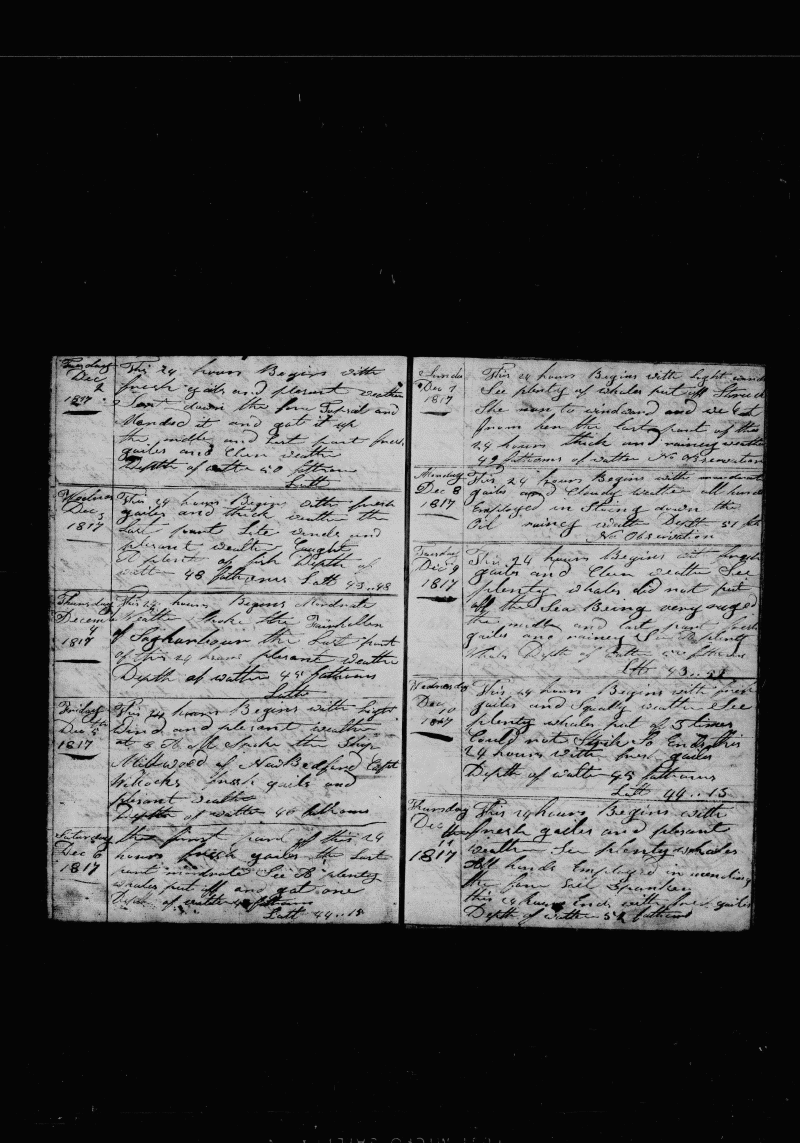 Tuesday Dec 2 1817
This 24 hours Begins with
fresh gails and plesent weather
down the fore Topsail and
Mended it and got it up
the midle and last part fresh
gailes and Clear weather
Depth of watter 50 fathoms
Latt
Dec 3 1817
This 24 hours Begins with fresh
gailes and thick weather the
Last part Lite winds and
plesant weather Caught
A plenty of fish Depth of
watter 48 fathoms Latt 43..48
Thursday Decem 4 1817
This 24 hours Begins Modrate
Weather Spoke Ship
of the Last part
of this 24 hours plesant weather
Depth of watter 45 fathoms
Latt
Friday Dec 5 1817
This 24 hours Begins with light
Wind and plesant weather
at 5 Spoke the Ship
Millwood of New Bedford Capt
Willcocks fresh gails and
plesant weather
Depth of watter 46 fathoms
Saturday Dec 6 1817
the first part of this 24
hours fresh gailes the Last
part modrate See A plenty
whales put off and got one
Depth of watter fathoms
Latt 44..15
Dec 7 1817
This 24 hours Begins with light winds
See plenty of whales put off Struck
She run to windward and we
from her the last part of this
24 hours thick and rainey weather
49 fathoms of watter No Observation
Monday Dec 8 1817
This 24 hours Begins with modrate
gailes and Cloudy weather all hands
Employed in Stowing down the
Oil rainey weather Depth 51
No Observation
Tuesday Dec 9 1817
This 24 hours Begins with
gailes and Clear weather See
plenty whales did not put
off the Sea Being very ruged
the midle and last part fresh
gailes and rainey See plenty
Whales Depth of watter fathoms
Latt 43..51
Wednesday Dec 10 1817
This 24 hours Begins with fresh
gailes and Squally weather See
plenty whales put of 5 times
Could not Strik So Ends this
24 hours with fresh gailes
Depth of watter 45 fathoms
Latt 44..15
Thursday Dec 11 1817
This 24 hours Begins with
fresh gailes and plesant
weather See plenty whales
All hands Employed in mending
the fore Sail Spanker
this 24 hours Ends with fresh gailes
Depth of watter 51 fathoms